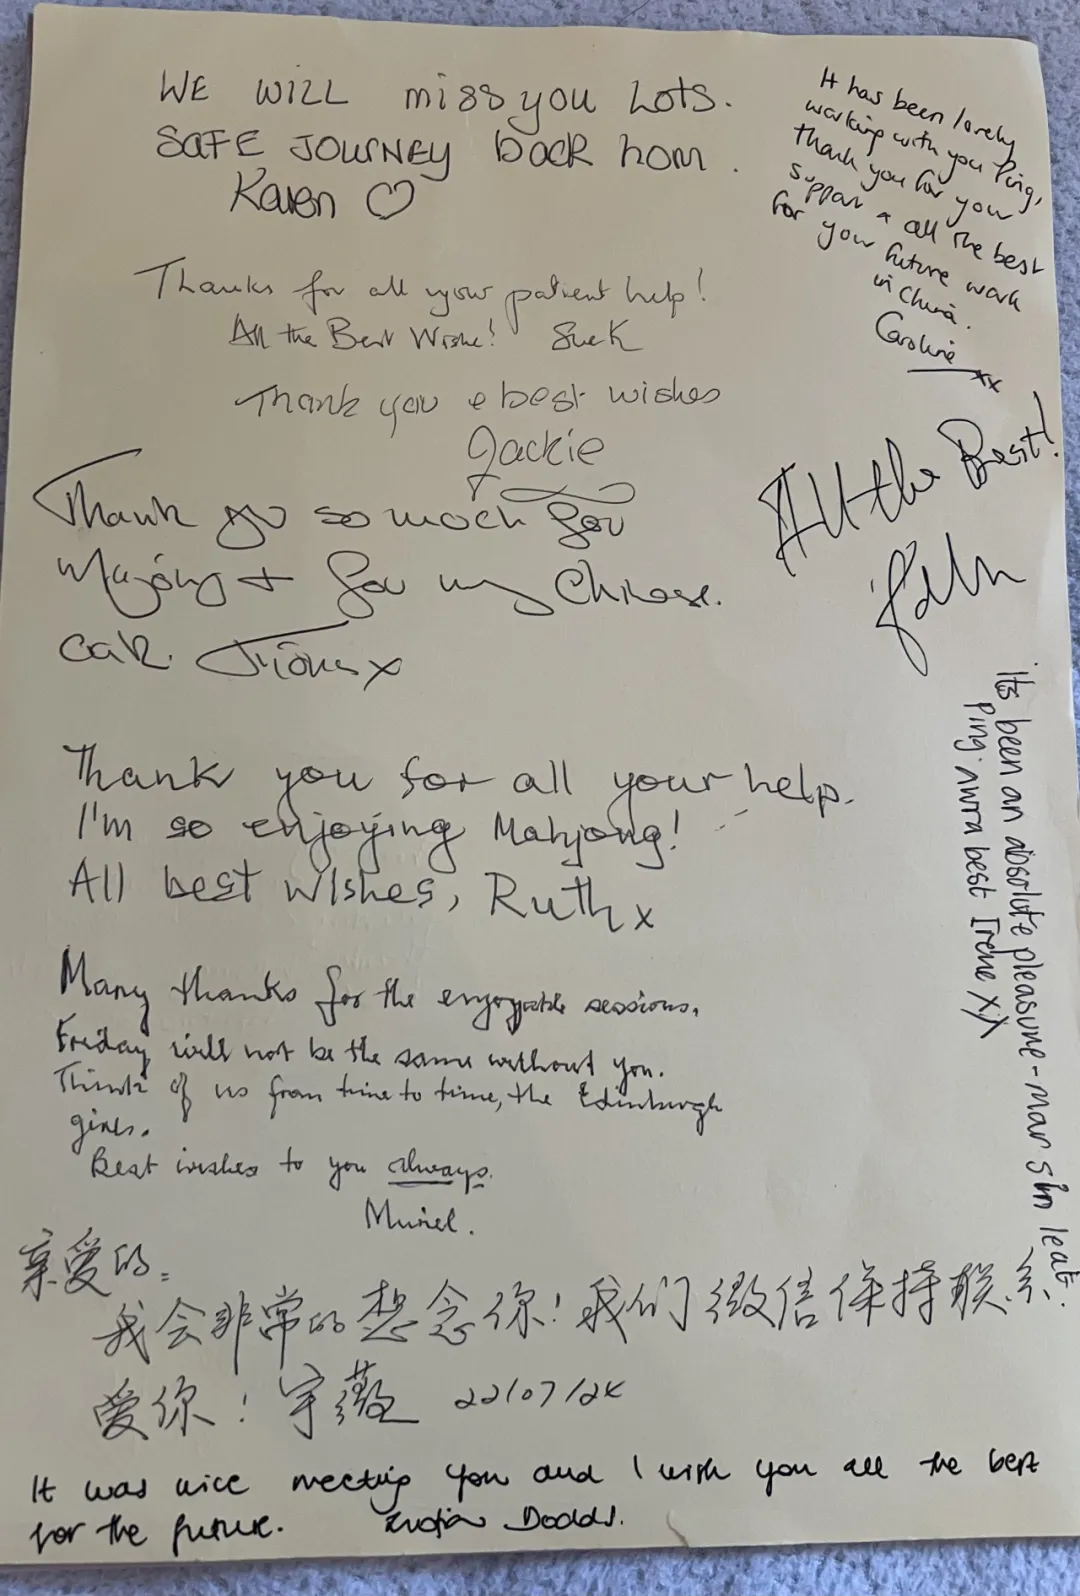 WE WILL miss you Lots.
SAFE JOURNEY back hom.
Karen
It has been lovely
working with you Ping,
thank you for your
support & all the best
for your future work
in China.
Caroline xx
Thanks for all your patient help!
All the Best Wishe!
Thank you & best wishes
Jackie
All the Best!
Thank yo so much for
Majong + for my Chinese.
Thank you for all your help.
I'm so enjoying Mahjong!
All best wishes, Ruth x
its been an absolute pleasure - mar sin leat
Ping best Irene XX
Many thanks for the enjoyable sessions.
Friday will not be the same without you.
Think of us from time to time, the Edinburgh
girls.
Best wishes to you always.
Muriel.
亲爱的:
我会非常的想念你!我们微信保持联系.
爱你!宇薇 22/07/24
It was nice meeting you and I wish you all the best
for the future. Dodds.